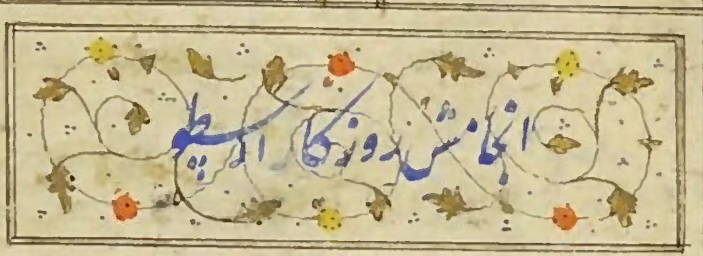 انجامش روزگار ارسطو